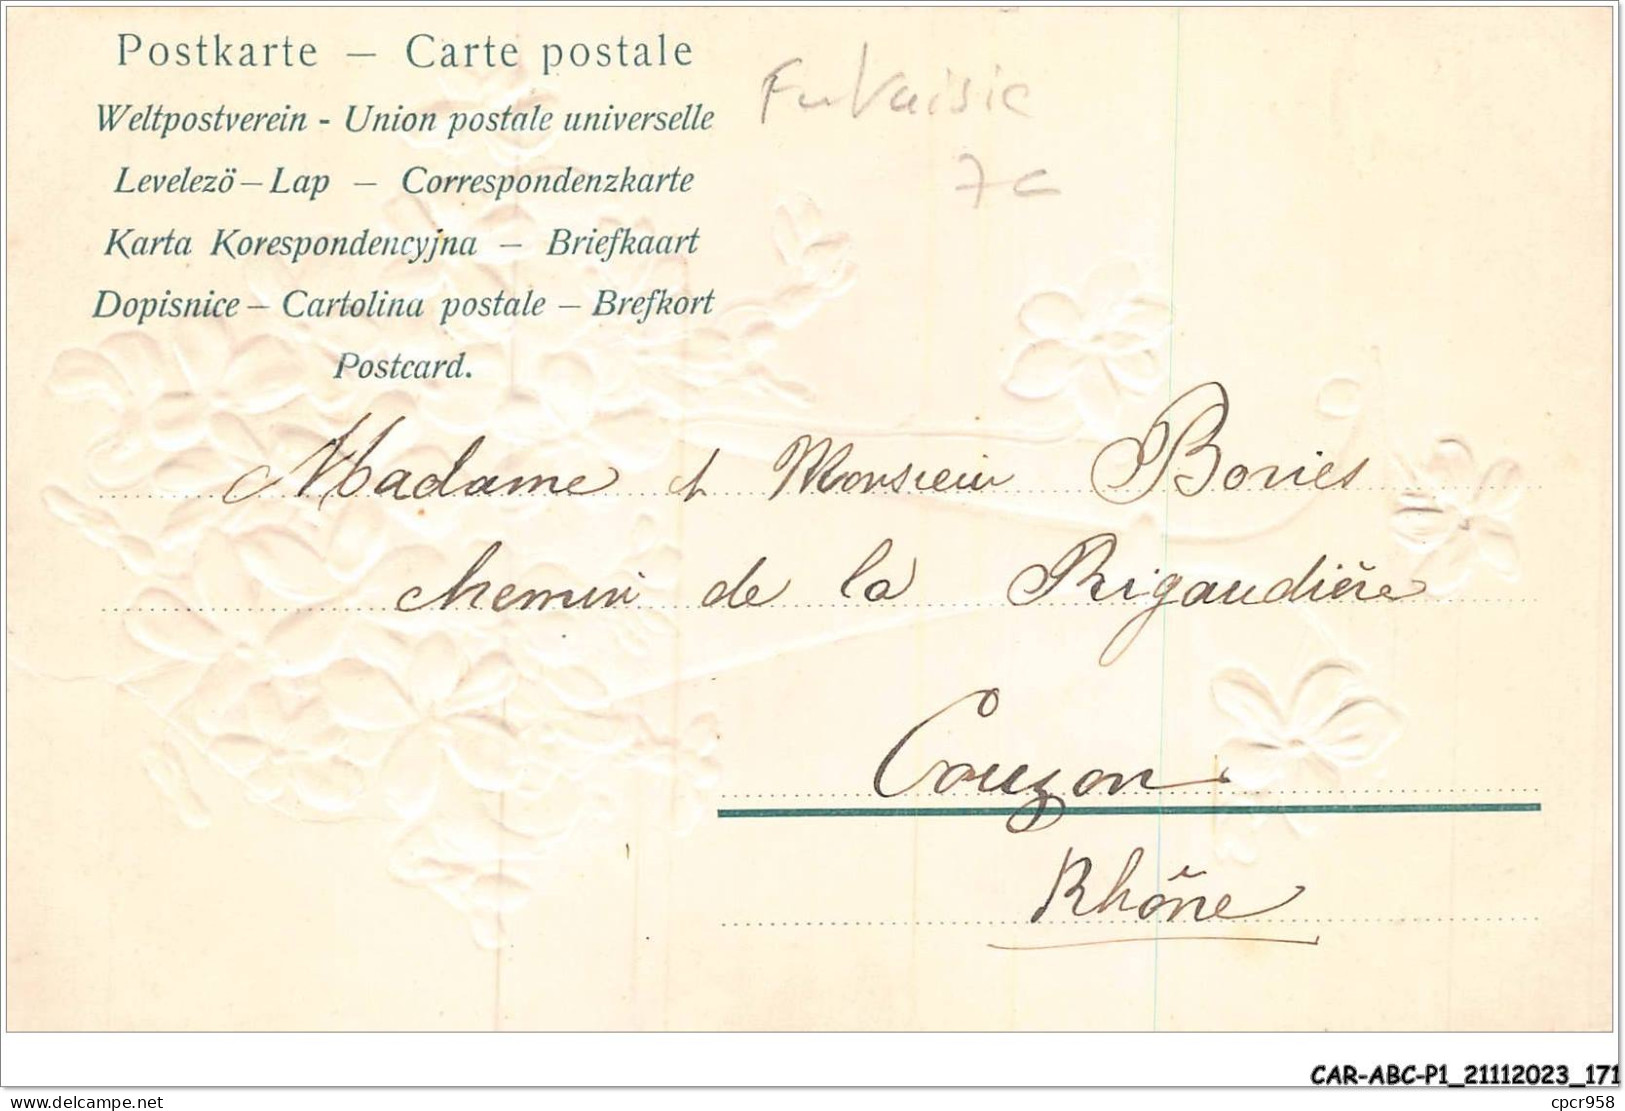 Postkarte – Carte postale
Weltpostverein - Union postale universelle
Levelezö – Lap – Correspondenzkarte
Karta Korespondencyjna – Briefkaart
Dopisnice – Cartolina postale – Brefkort
Postcard.
7c
Madame et Monsieur Bories
chemin de la Rigaudière
Couzon
Rhône
CAR-ABC-P1_21112023_171
www.delcampe.net
cpcr958